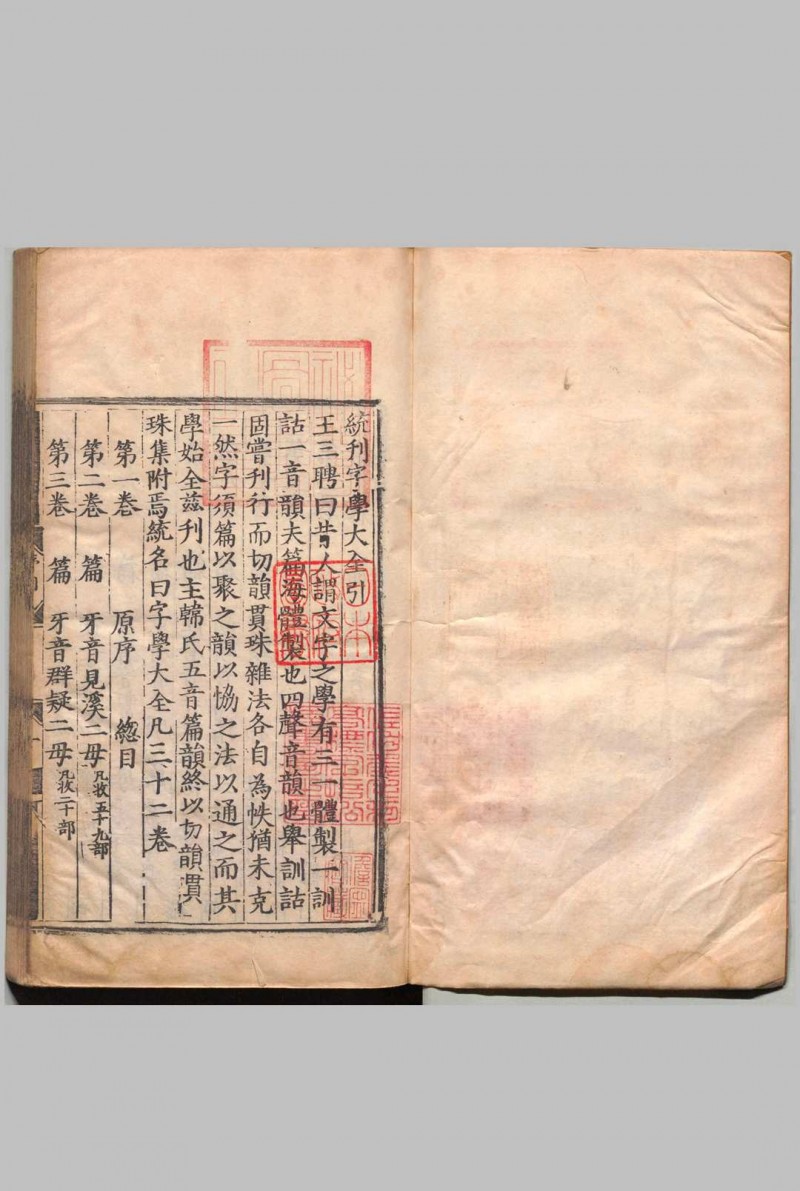 統刊字學大全引
王三聘曰昔人謂文字之學有三一體製一訓
詁一音韻夫篇海體製也四聲音韻也舉訓詁
固嘗刊行而切韻貫珠雜法各自為帙猶未克
一然字須篇以聚之韻以恊之法以通之而其
學始全茲刊也主韓氏五音篇韻終以切韻貫
珠集附焉統名曰字學大全凡三十二卷
第一卷 原序 總目
第二卷 篇 牙音見溪二母凡牧五十九部
第三卷 篇 牙音群疑二母凡牧二十部